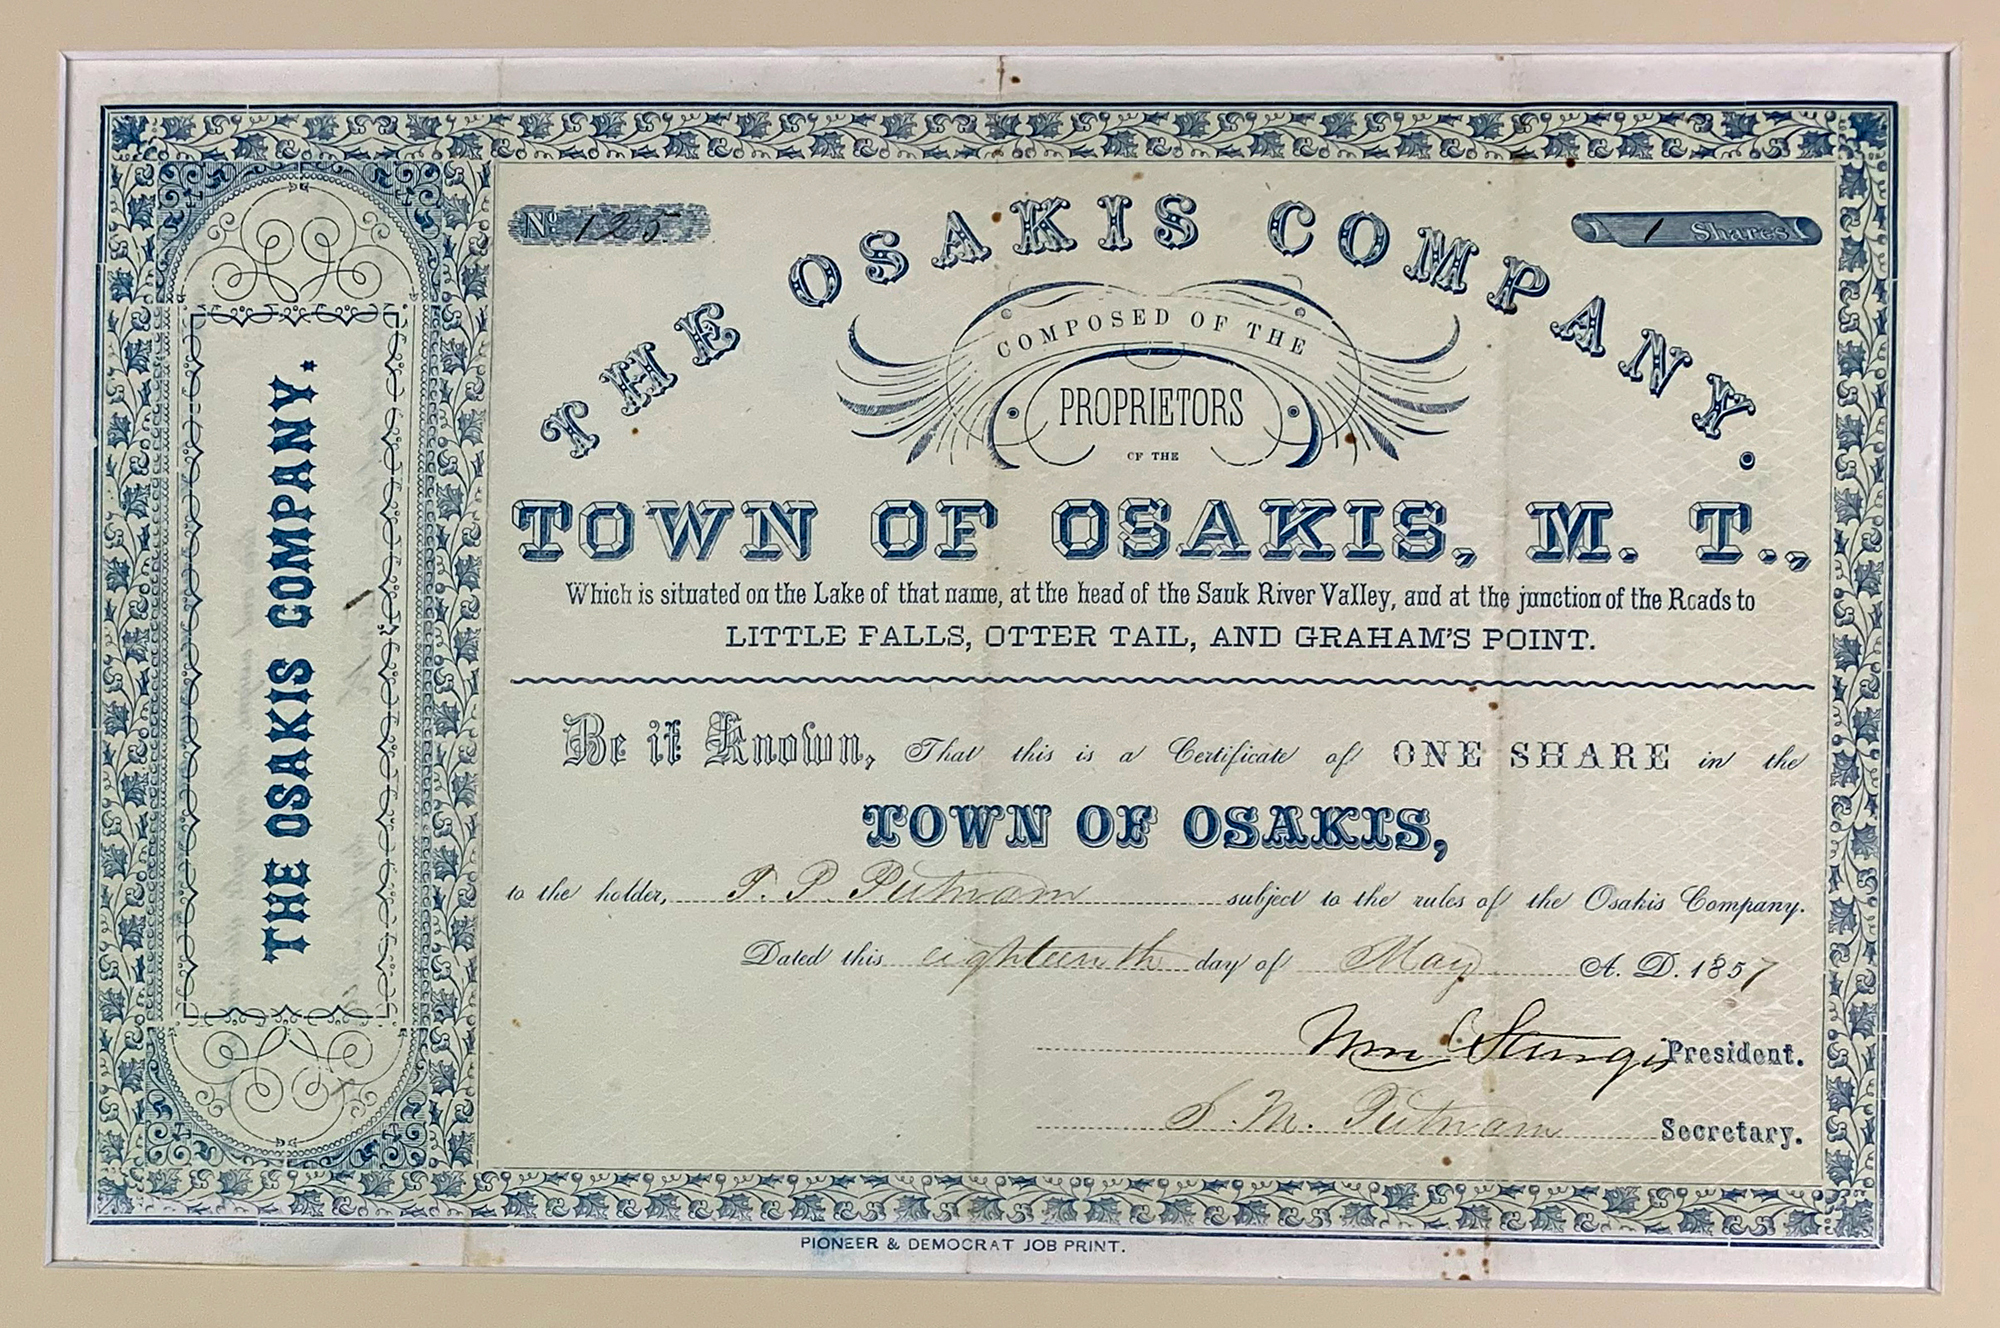 THE OSAKIS COMPANY.
No. 125
1 Shares
THE OSAKIS COMPANY.
COMPOSED OF THE
PROPRIETORS
OF THE
TOWN OF OSAKIS, M. T.,
Which is situated on the Lake of that name, at the head of the Sauk River Valley, and at the junction of the Roads to
LITTLE FALLS, OTTER TAIL, AND GRAHAM'S POINT.
Be it Known, That this is a Certificate of ONE SHARE in the
TOWN OF OSAKIS,
to the holder, T. P. Putnam subject to the rules of the Osakis Company.
Dated this eighteenth day of May A. D. 1857
Wm C Sturgis President.
S. M. Putnam Secretary.
PIONEER & DEMOCRAT JOB PRINT.